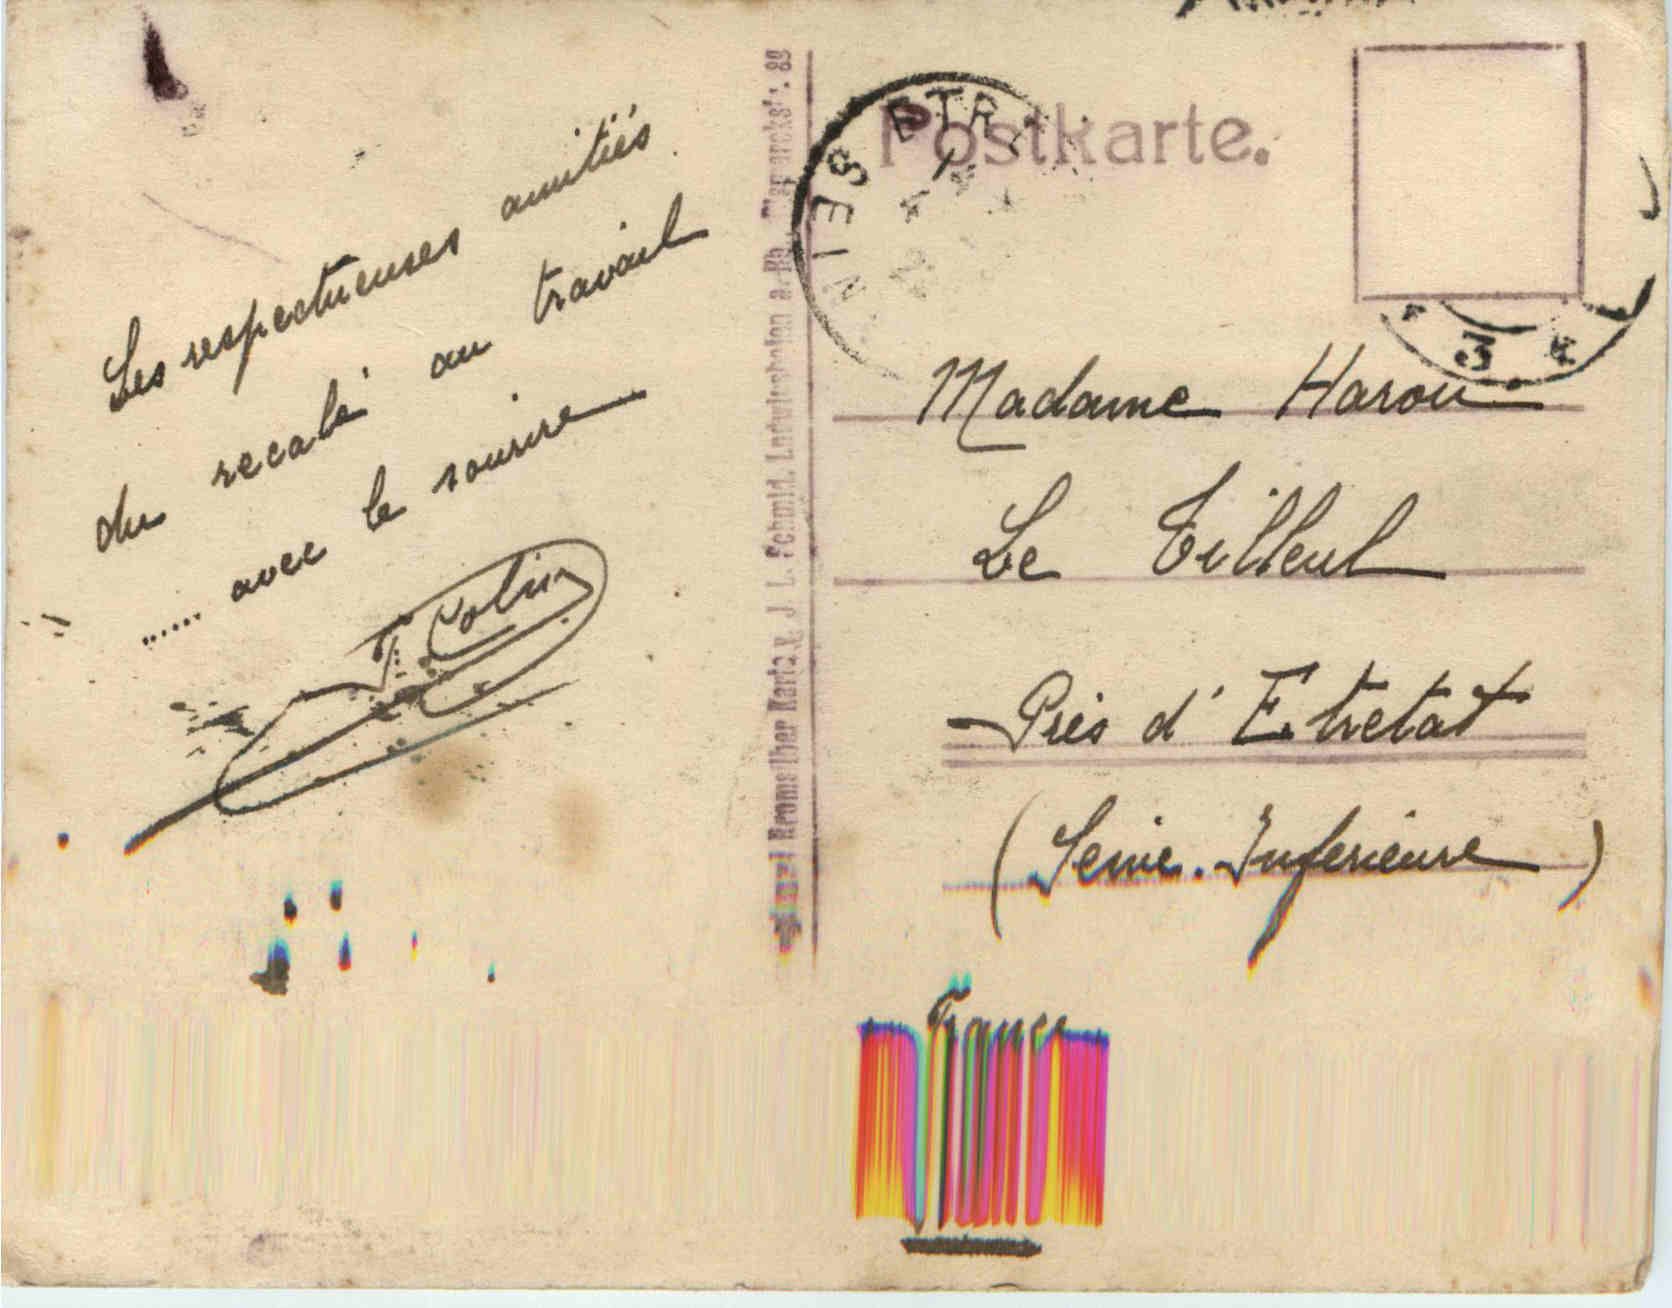 Les respectueuses amitiés
du recalé au travail
..... avec le sourire
Colin
Original Bromsilber Karte v. J. L. Schmid, Ludwigshafen a. Rh., Bismarckstr. 89
Postkarte.
Madame Harou
Le Tilleul
Près d'Etretat
(Seine-Inferieure)
France